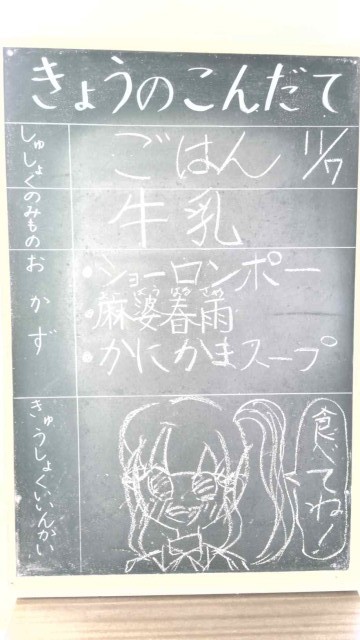 きょうのこんだて
11/7
しゅしょく
ごはん
のみもの
牛乳
おかず
・ショーロンポー
・麻婆春雨
・かにかまスープ
きゅうしょくいいんかい
食べてね!